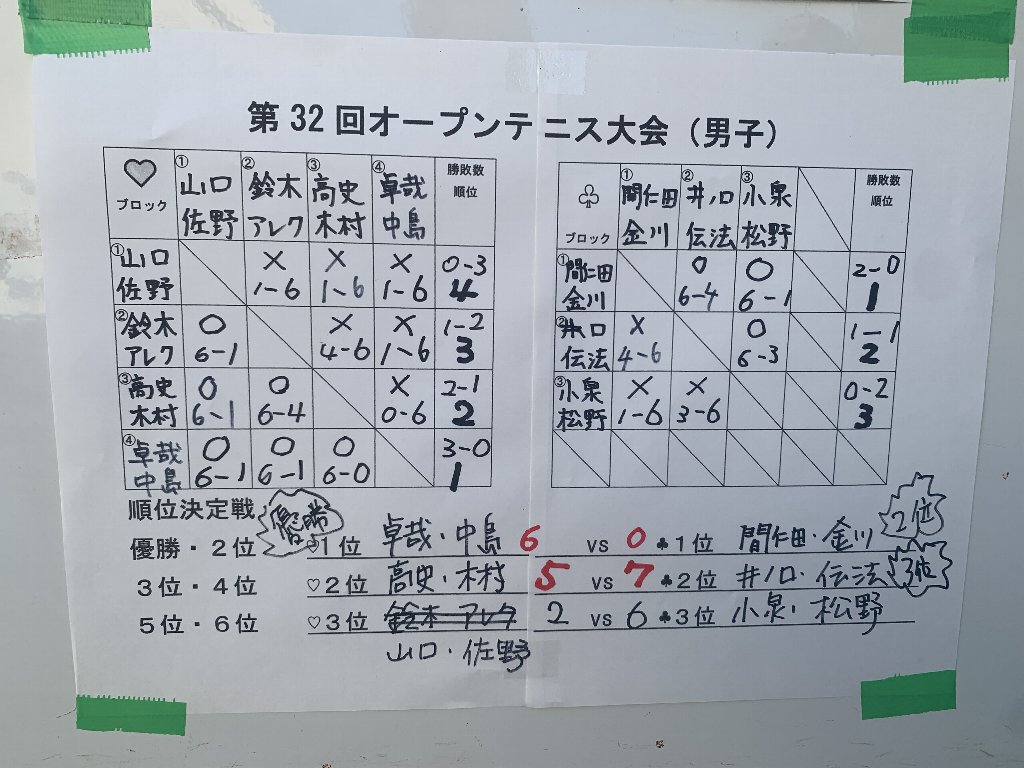 第32回オープンテニス大会（男子）
♡ブロック ①山口 佐野 ②鈴木 アレク ③高史 木村 ④卓哉 中島 勝敗数 順位
①山口 佐野 × 1-6 × 1-6 × 1-6 0-3 4
②鈴木 アレク ○ 6-1 × 4-6 × 1-6 1-2 3
③高史 木村 ○ 6-1 ○ 6-4 × 0-6 2-1 2
④卓哉 中島 ○ 6-1 ○ 6-1 ○ 6-0 3-0 1
♧ブロック ①間仁田 金川 ②井ノ口 伝法 ③小泉 松野 勝敗数 順位
①間仁田 金川 ○ 6-4 ○ 6-1 2-0 1
②井口 伝法 × 4-6 ○ 6-3 1-1 2
③小泉 松野 × 1-6 × 3-6 0-2 3
順位決定戦
優勝・2位 優勝 ♡1位 卓哉・中島 6 vs 0 ♣1位 間仁田・金川 2位
3位・4位 ♡2位 高史・木村 5 vs 7 ♣2位 井ノ口・伝法 3位
5位・6位 ♡3位 鈴木 アレク 2 vs 6 ♣3位 小泉・松野
山口・佐野